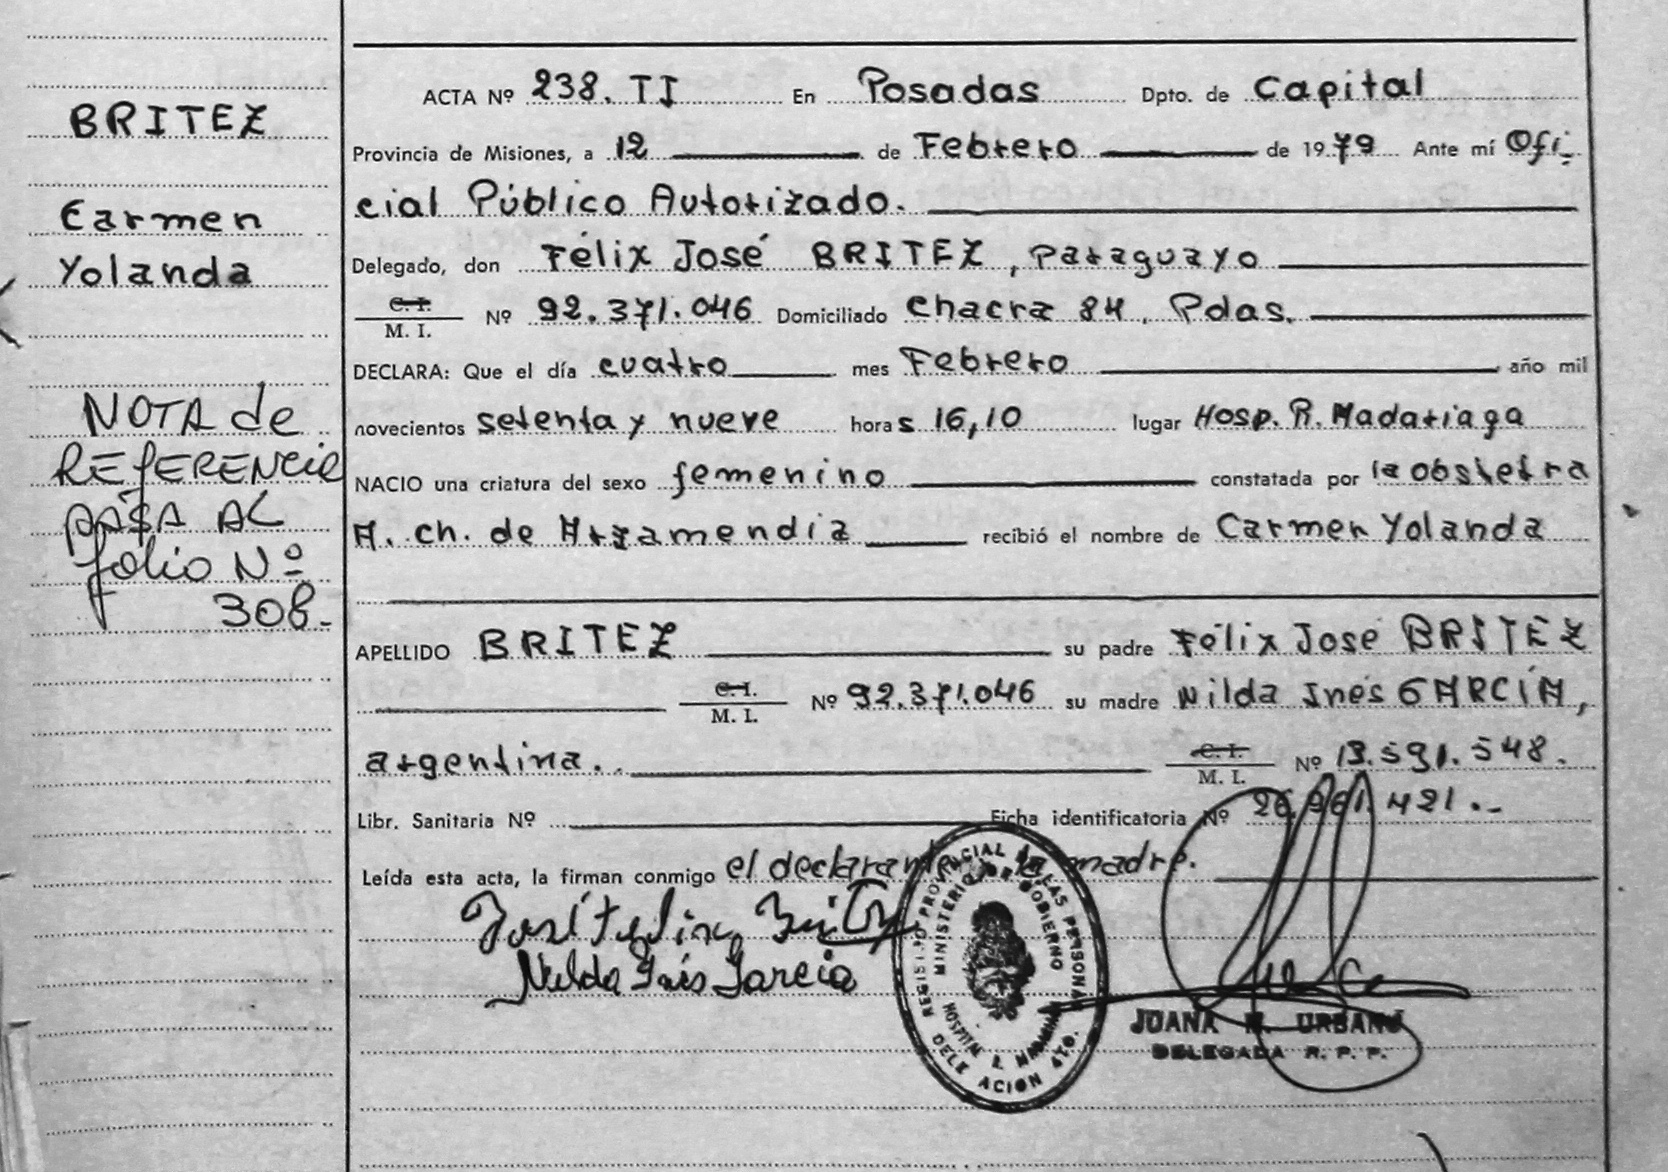 BRITEZ
Carmen
Yolanda
NOTA de
REFERENCIA
PASA AL
folio Nº
308.-
ACTA Nº 238. TI En Posadas Dpto. de Capital
Provincia de Misiones, a 12 de Febrero de 1979 Ante mí Ofi-
cial Público Autorizado.
Delegado, don Félix José BRITEZ, paraguayo
C. I.
M. I. Nº 92.371.046 Domiciliado Chacra 84, Pdas.
DECLARA: Que el día cuatro mes Febrero año mil
novecientos setenta y nueve horas 16,10 lugar Hosp. R. Madariaga
NACIO una criatura del sexo femenino constatada por la obstetra
A. ch. de Arzamendia recibió el nombre de Carmen Yolanda
APELLIDO BRITEZ su padre Félix José BRITEZ
C. I.
M. I. Nº 92.371.046 su madre Nilda Inés GARCÍA,
argentina. C. I.
M. I. Nº 13.591.548.
Libr. Sanitaria Nº Ficha identificatoria Nº 26.961.421.-
Leída esta acta, la firman conmigo el declarante la madre.
Nilda Inés García
REGISTRO PROVINCIAL DE LAS PERSONAS
MINISTERIO DE GOBIERNO
HOSPITAL R. MADARIAGA
DELEGACION 4TO.
JUANA M. URBANO
DELEGADA R. P. P.